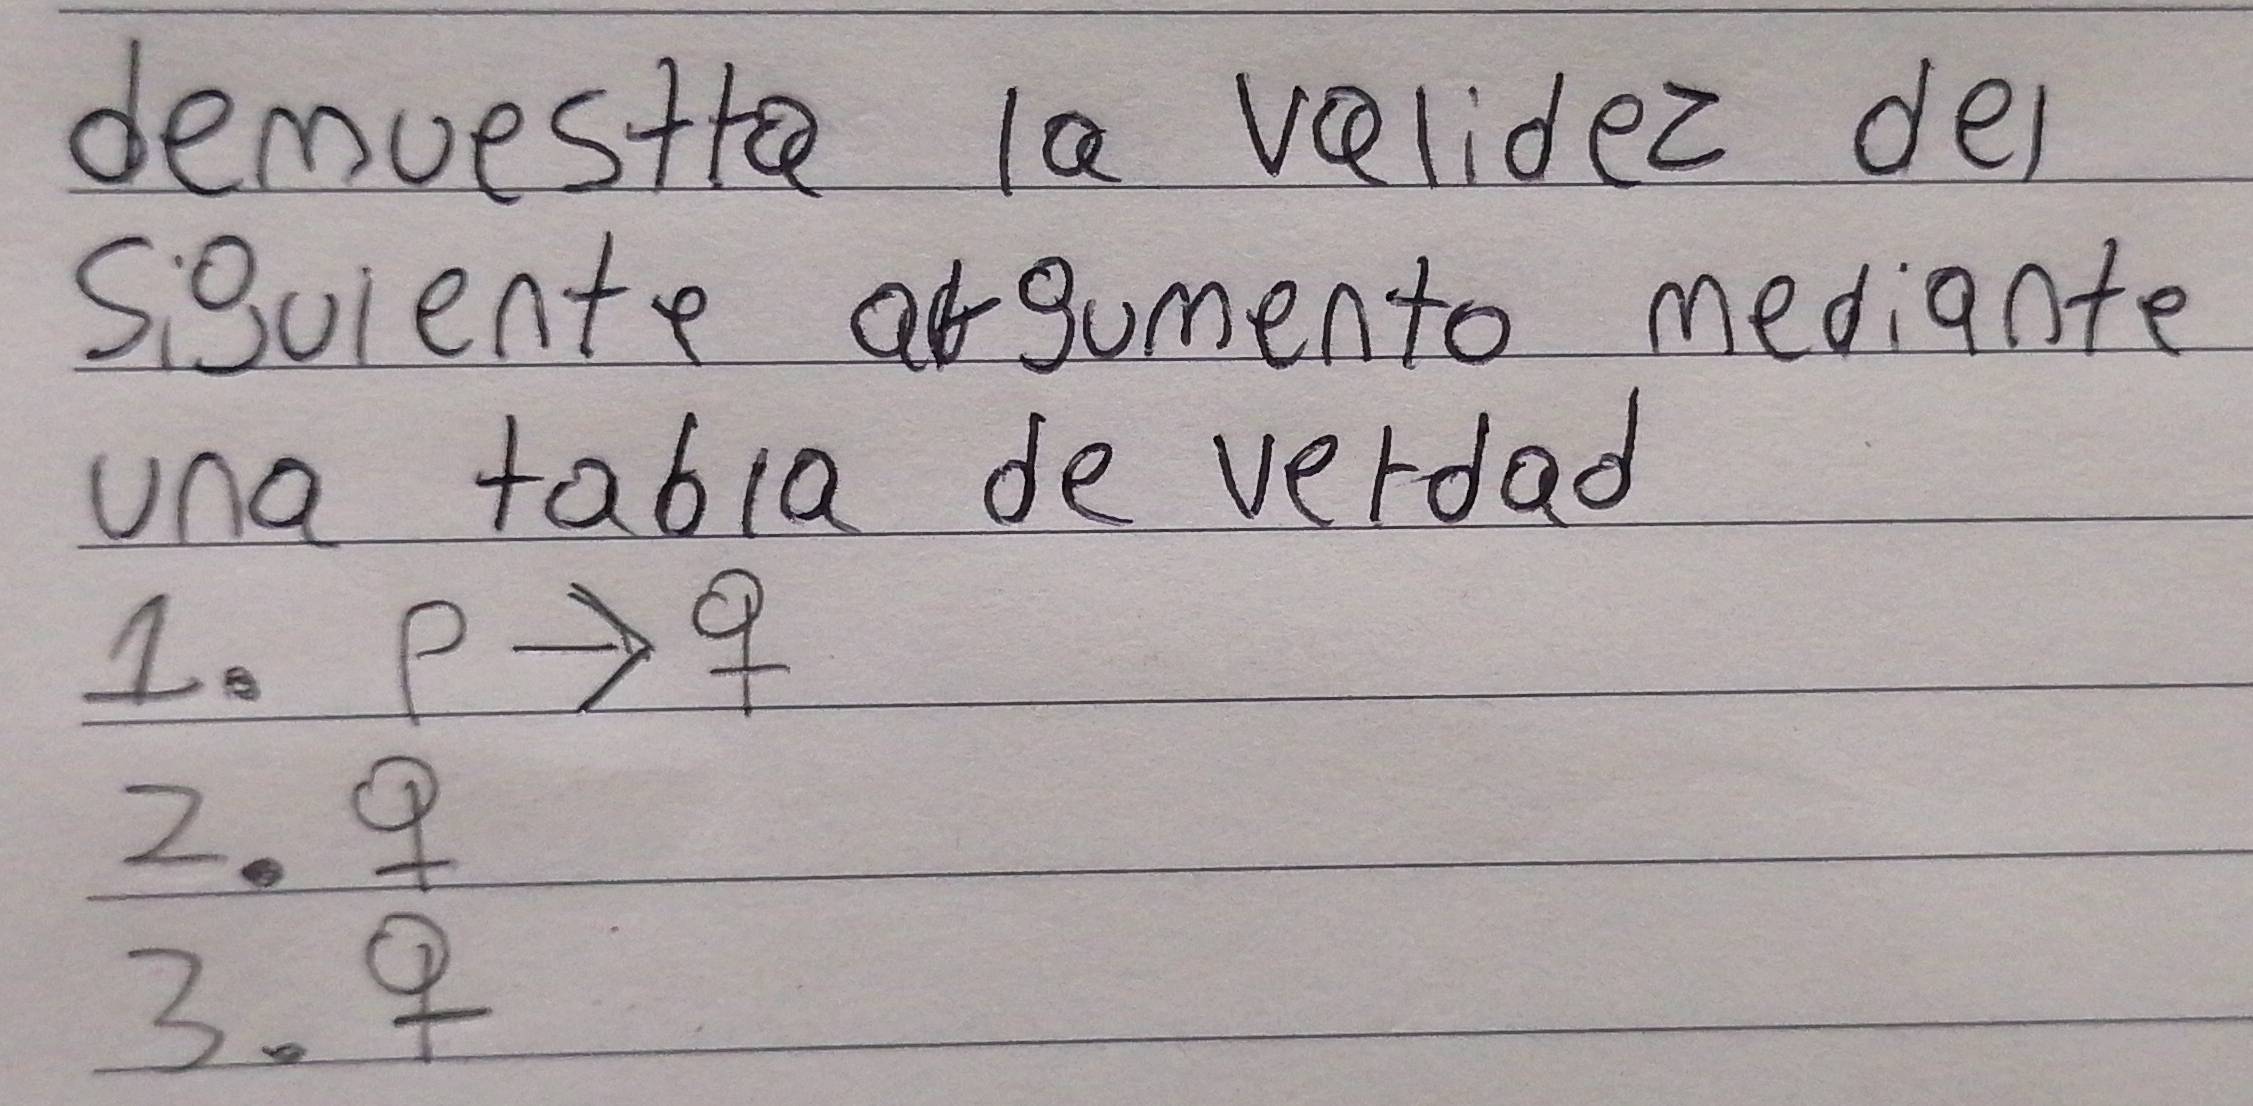 demuestra la validez del
siguiente argumento mediante
una tabla de verdad
1. p → q
2. q
3. q